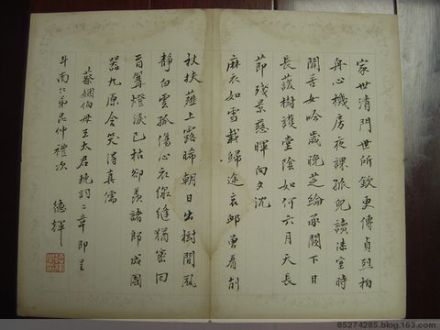 家世清門世所欽更傳貞烈柏
舟心機房夜課孤兒讀法室時
聞吾女吟歲晚芝綸承闕下日
長護樹護堂陰如何六月天長
節殘景慈暉向夕沉
麻衣如雪載歸途玄邱曾看封
秋扶薤上露晞朝日出樹間風
靜白雲孤傷心衣線縫猶密回
首篝燈淚已枯卻羨諸郎成國
器九原含笑得真儒
蔡姻伯母王太君挽詞二章即呈
斗南仁弟昆仲禮次
德輝
85274285.blog.163.com